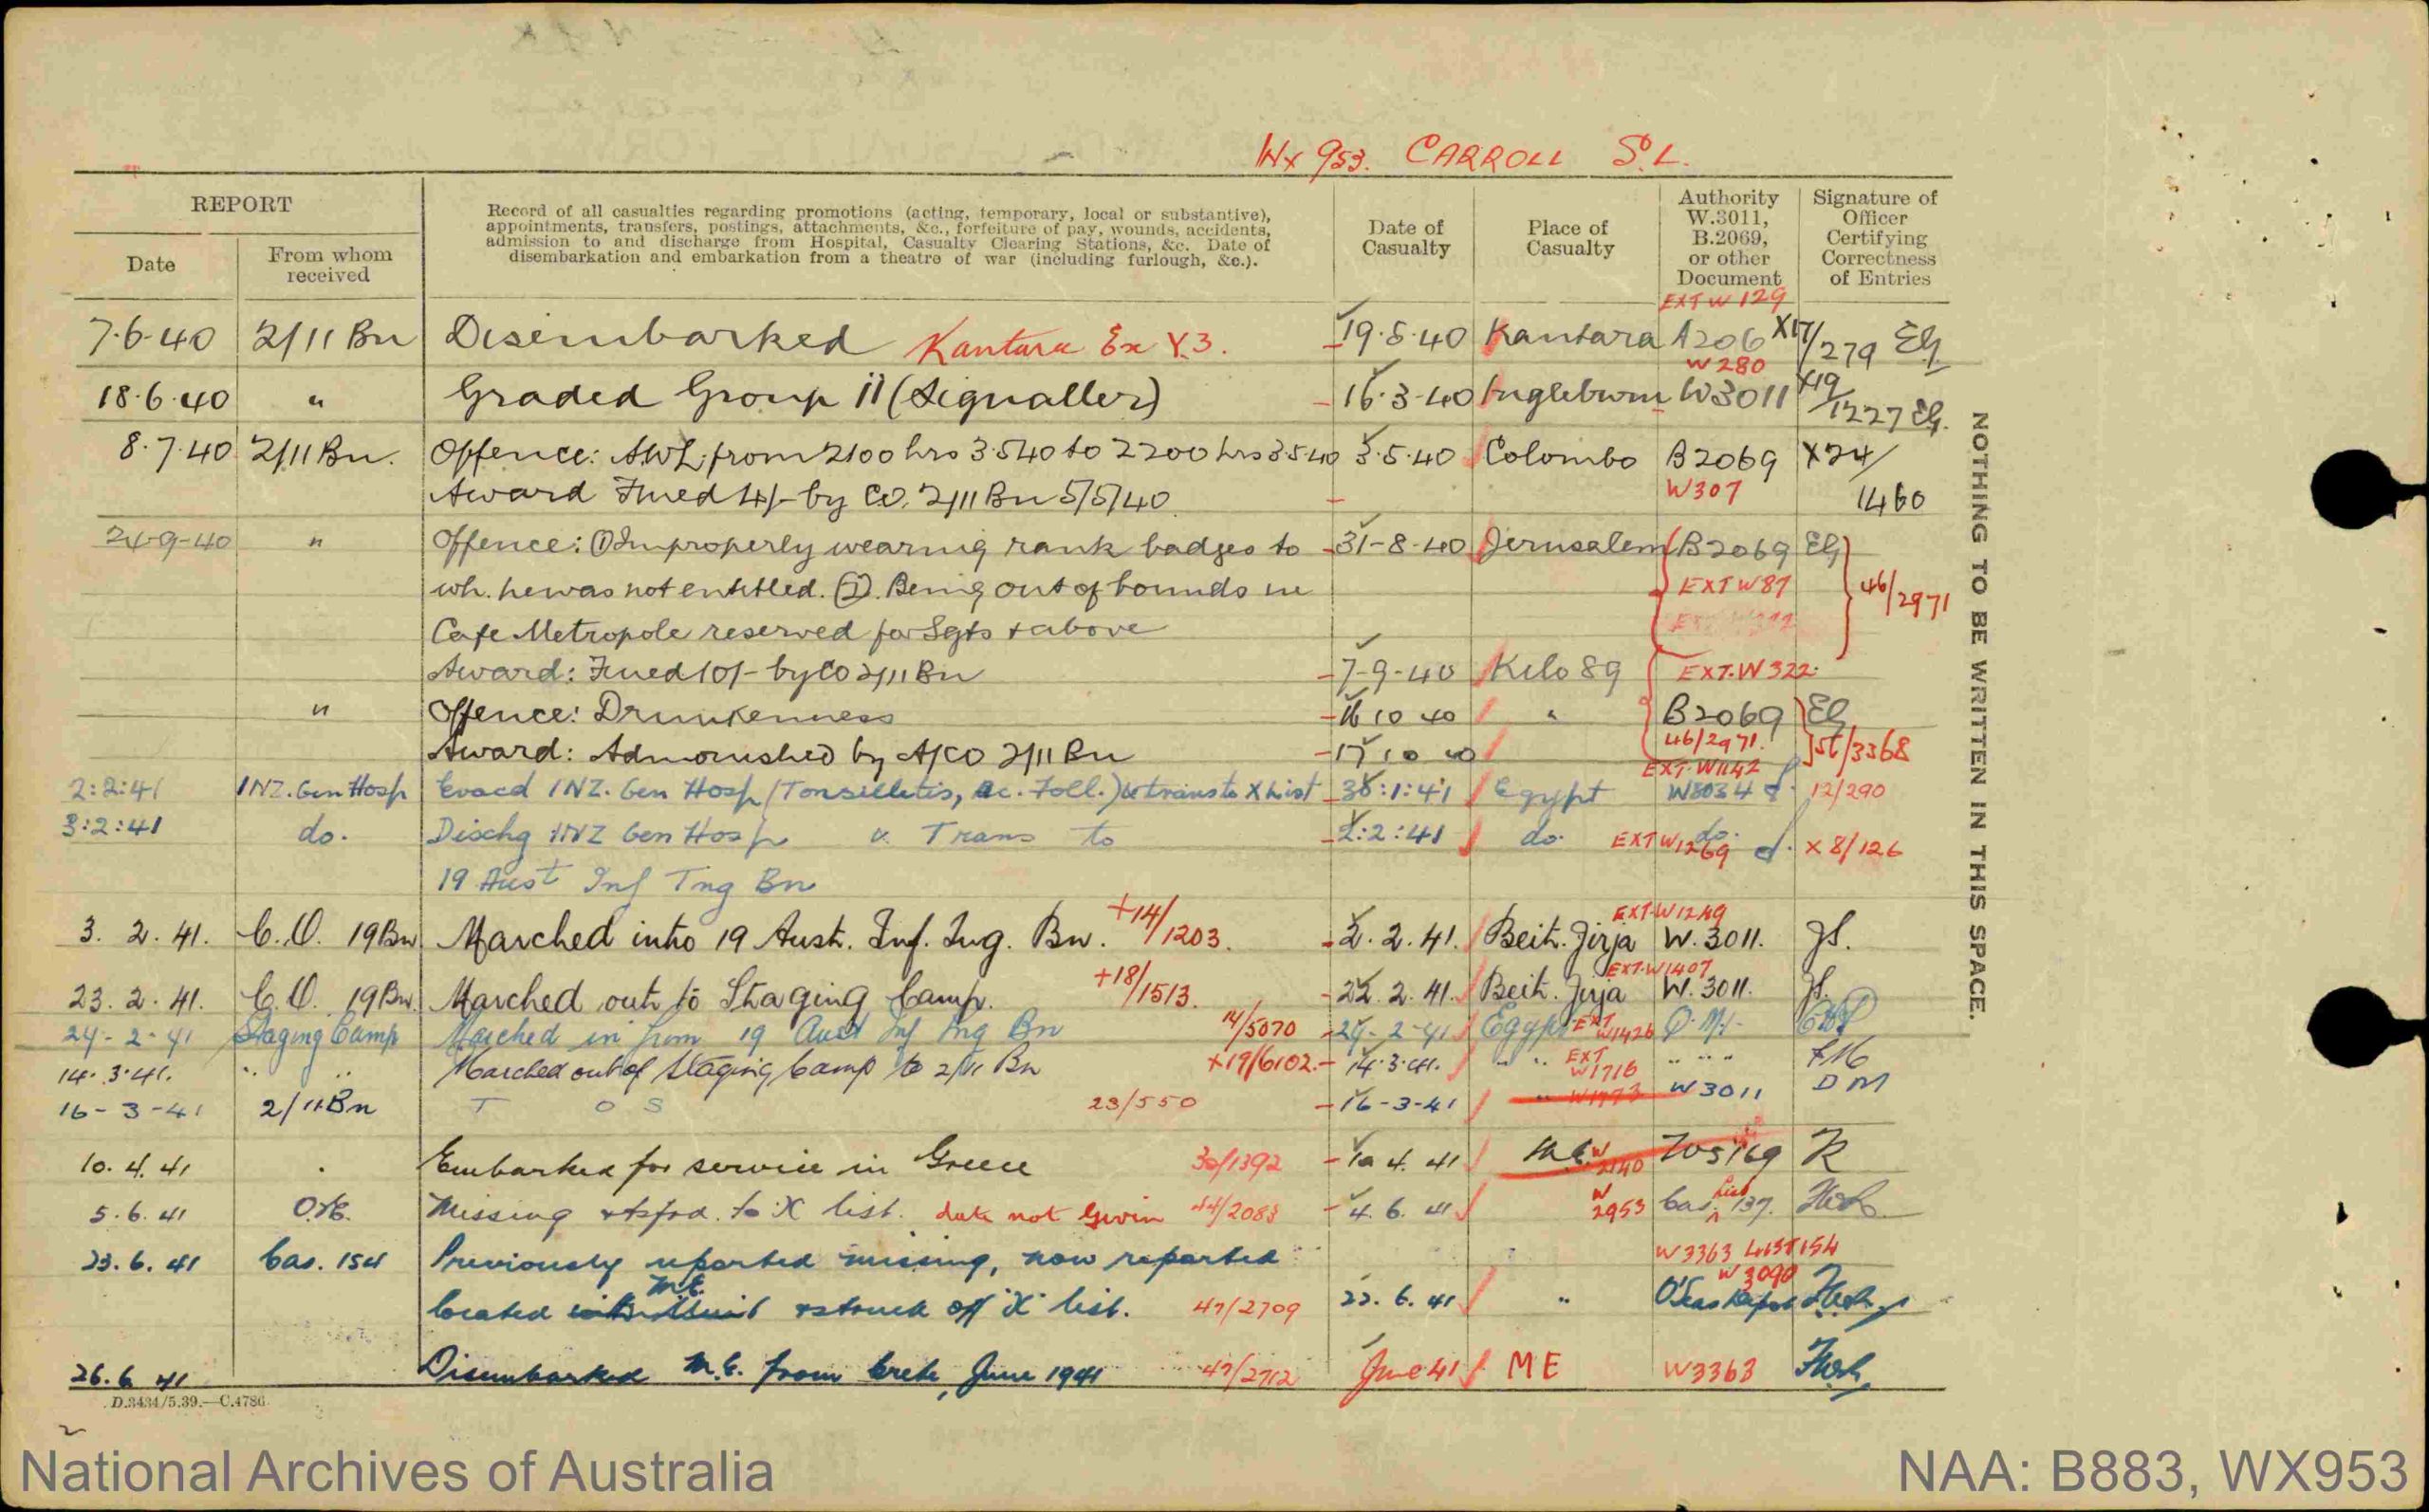 WX 953. CARROLL S.L.
REPORT
Date
From whom received
Record of all casualties regarding promotions (acting, temporary, local or substantive),
appointments, transfers, postings, attachments, &c., forfeiture of pay, wounds, accidents,
admission to and discharge from Hospital, Casualty Clearing Stations, &c. Date of
disembarkation and embarkation from a theatre of war (including furlough, &c.).
Date of Casualty
Place of Casualty
Authority W.3011, B.2069, or other Document
Signature of Officer Certifying Correctness of Entries
EXT W 129
7.6.40 2/11 Bn Disembarked Kantara Ex Y.3. 19.5.40 Kantara A206 X17/279
W280
18.6.40 " Graded Group II (Signaller) 16.3.40 Ingleburn W3011 X19/1227
8.7.40 2/11 Bn. Offence: AWL from 2100 hrs 3.5.40 to 2200 hrs 3.5.40 3.5.40 Colombo B2069 X24/1460
Award Fined 4/- by CO. 2/11 Bn 5/5/40 W307
24-9-40 " Offence: (1) Improperly wearing rank badges to 31-8-40 Jerusalem B2069
wh. he was not entitled. (2). Being out of bounds in EXT W87 46/2971
Cafe Metropole reserved for Sgts + above
Award: Fined 10/- by CO 2/11 Bn 7-9-40 Kilo 89 EXT.W322.
" Offence: Drunkenness 16 10 40 " B2069
Award: Admonished by A/CO 2/11 Bn 17 10 40 46/2971. /3368
EXT.W1142
2:2:41 1NZ.Gen Hosp Evacd 1NZ. Gen Hosp (Tonsilletis, ac. Foll.) & trans to X List 30:1:41 Egypt W8034 12/290
3:2:41 do. Dischg 1NZ Gen Hosp & Trans to 2:2:41 do. EXT W1269 do. X 8/126
19 Aust Inf Tng Bn
3. 2. 41. C.O. 19 Bn Marched into 19 Aust. Inf. Tng. Bn. +14/1203. 2. 2. 41. Beit. Jirja EXT.W1249 W. 3011. JS.
23. 2. 41. C.O. 19 Bn. Marched out to Staging Camp. +18/1513. 22. 2. 41. Beit. Jirja EXT.W1407 W. 3011. JS.
24-2-41 Staging Camp Marched in from 19 Aust Inf Tng Bn 14/5070 24-2-41 Egypt EXT W1426
14.3.41. " " Marched out of Staging Camp to 2/11 Bn +19/6102. 14.3.41. " " EXT W1716 " " "
16-3-41 2/11 Bn T O S 23/550 16-3-41 " W1773 W3011 DM
10. 4. 41 . Embarked for service in Greece 30/1392 10 4. 41 M.E. W 2140
5. 6. 41 Missing & tsfrd. to X list. date not Given 44/2083 4. 6. 41 W 2953 Cas. List 137.
23. 6. 41 Cas. 154 Previously reported missing, now reported W3363 LIST 154
located M.E. & struck off X list. 47/2709 22. 6. 41 " W3090 O'Seas Report
26. 6 41 Disembarked M.E. from Crete, June 1941 47/2712 June 41 ME W3363
D.3434/5.39.—C.4786
NOTHING TO BE WRITTEN IN THIS SPACE.
National Archives of Australia
NAA: B883, WX953